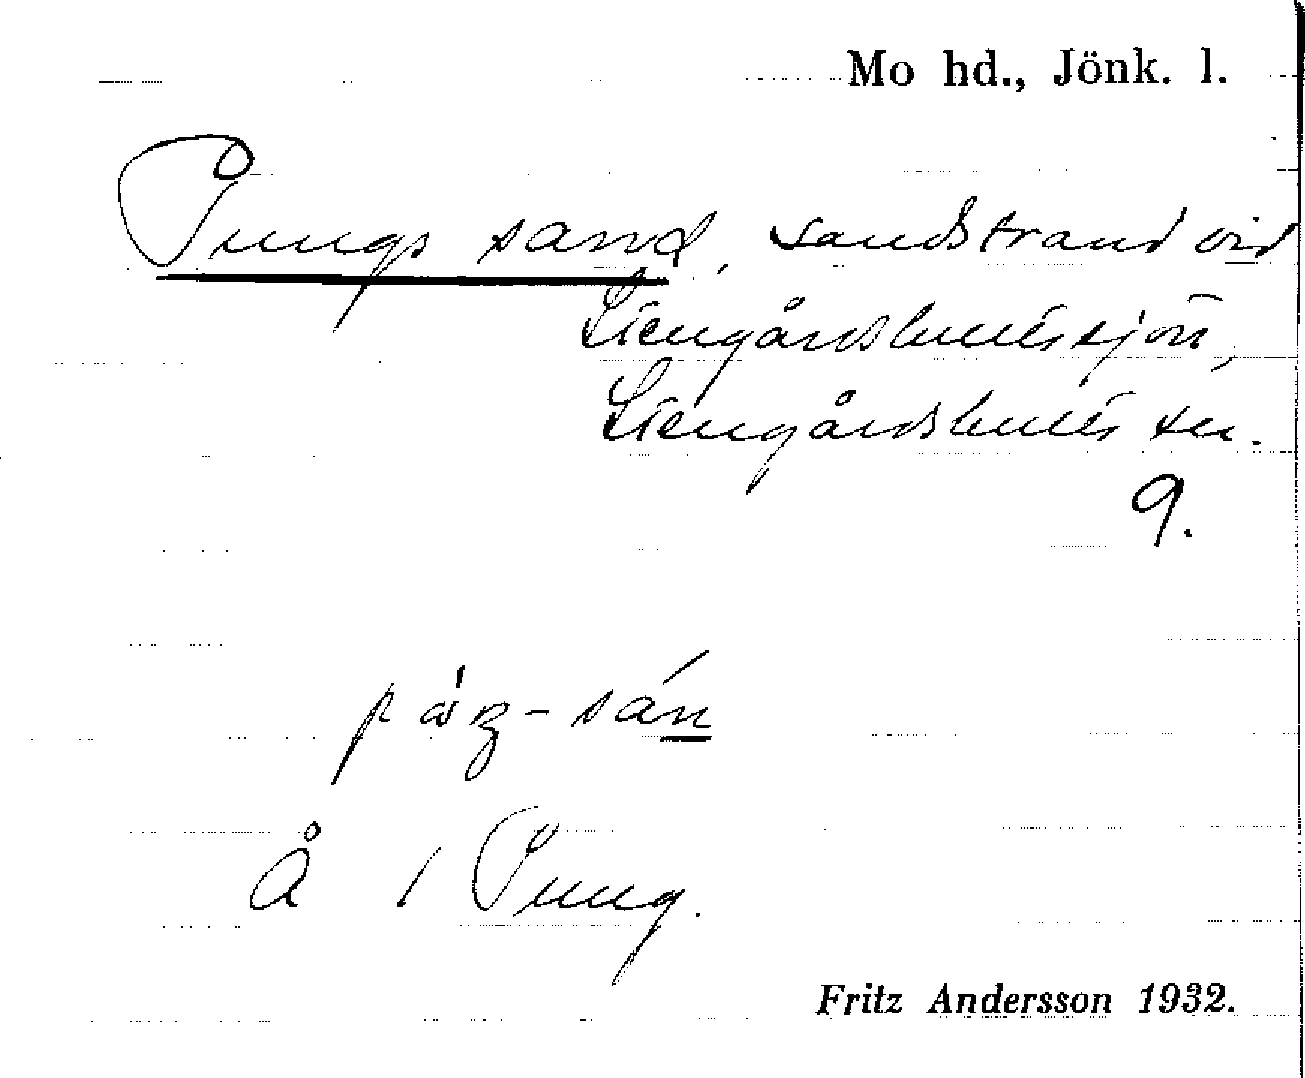 Mo hd., Jönk. l.
Pungs sand, sandstrand vid
Stengårdshultsjön,
Stengårdshults sn.
9.
Å 1 Pung.
Fritz Andersson 1932.